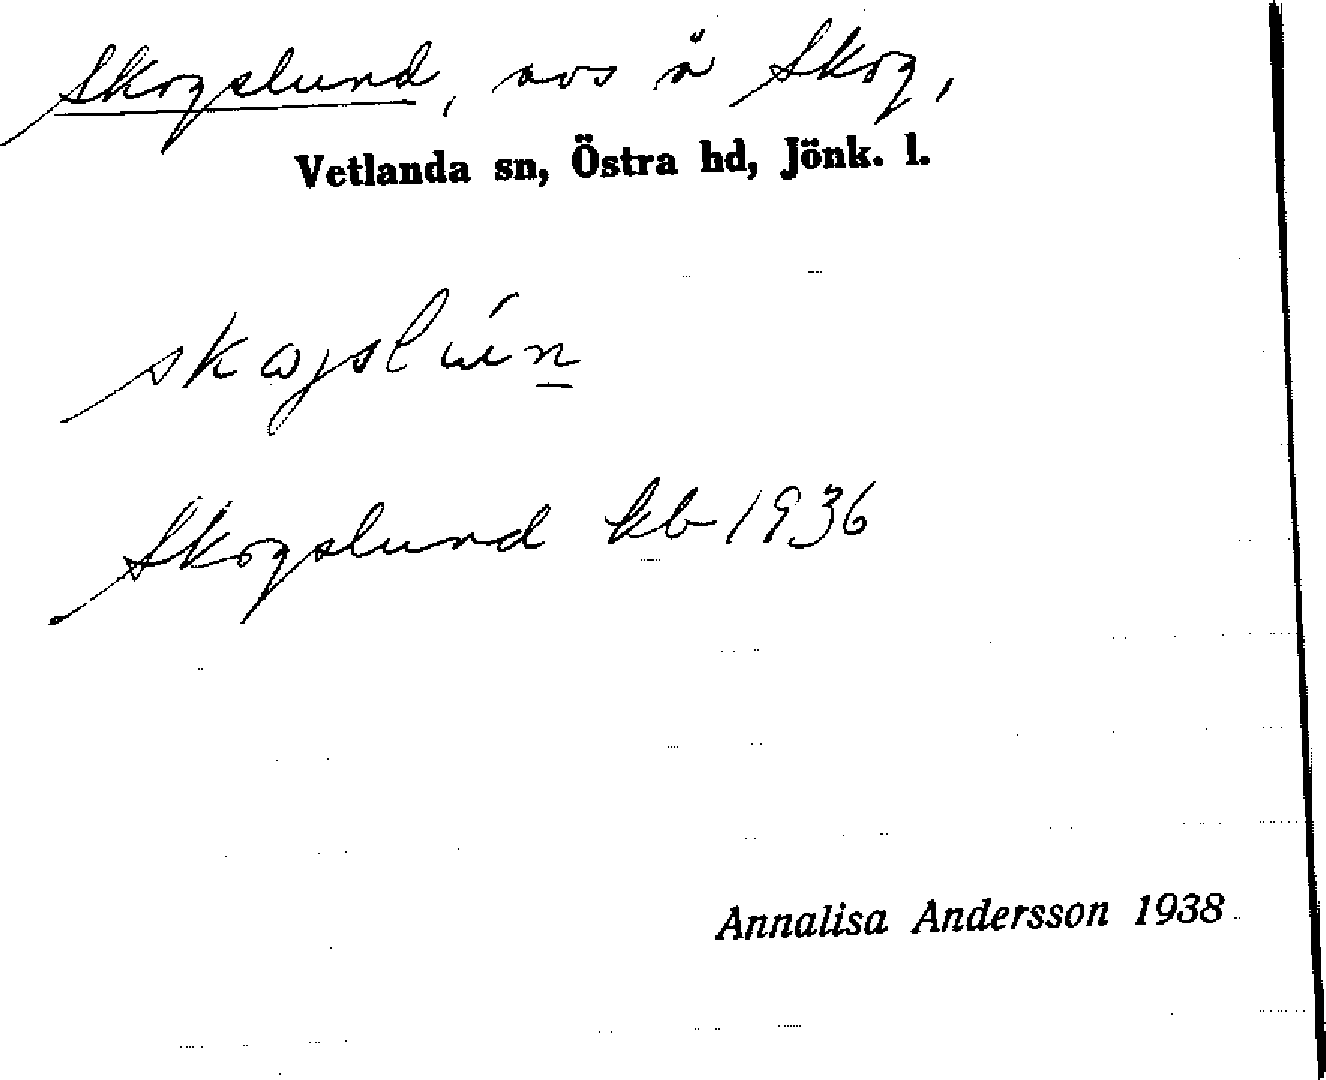 Skogslund, avs å Skog,
Vetlanda sn, Östra hd, Jönk. l.
Skogslund kb 1936
Annalisa Andersson 1938